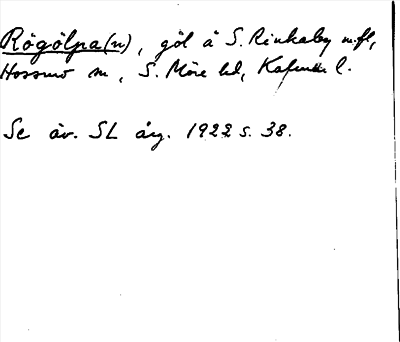 Rögölpa(n), göl å S. Rinkaby m.fl,
Hossmo sn, S. Möre hd, Kalmar l.
Se äv. SL årg. 1922 s. 38.